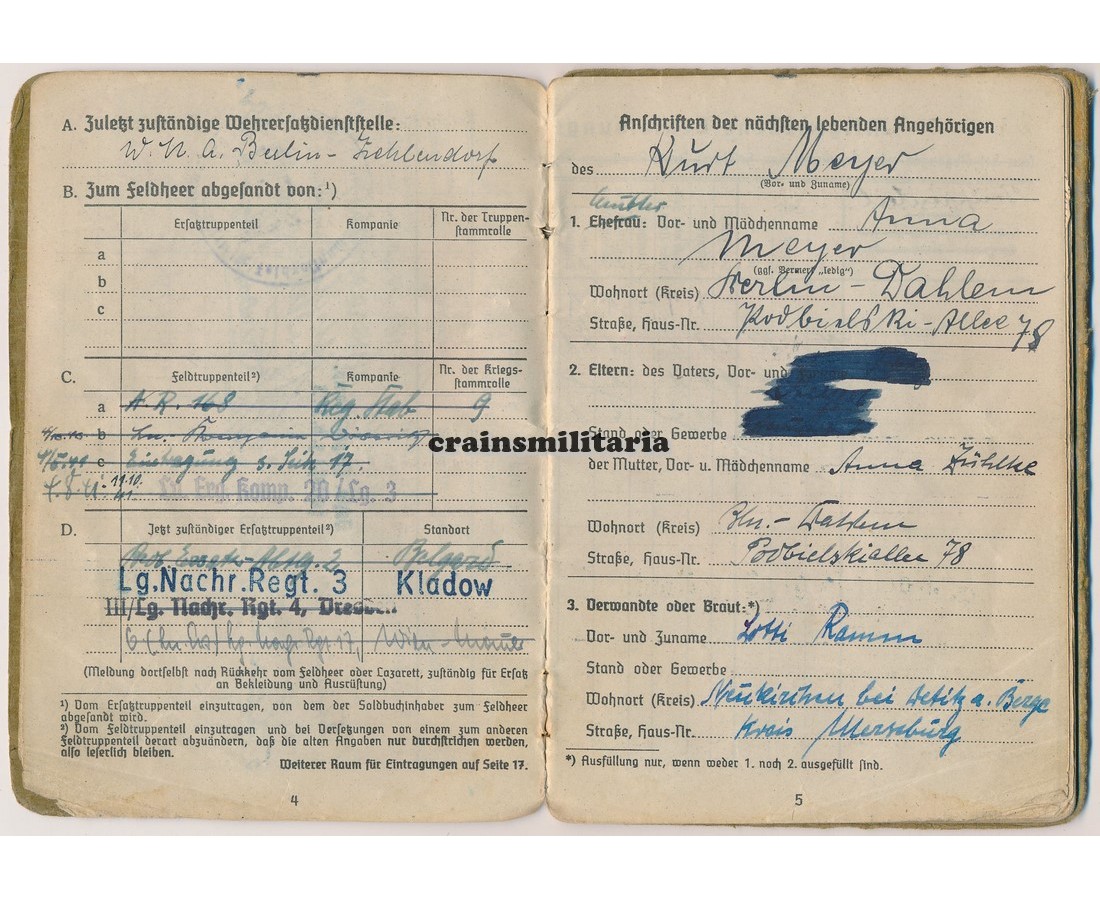 A. Zuletzt zuständige Wehrersatzdienststelle:
Berlin-Zehlendorf
B. Zum Feldheer abgesandt von:¹)
Ersatztruppenteil Kompanie Nr. der Truppenstammrolle
a
b
c
C. Feldtruppenteil²) Kompanie Nr. der Kriegsstammrolle
a A.R. 168 Reg. Stab 9
b
c Eintragung s. Seite 17.
11.10.41
D. Jetzt zuständiger Ersatztruppenteil²) Standort
Belgard
Lg.Nachr.Regt. 3 Kladow
III/Lg. Nachr. Rgt. 4, Dresden
(Meldung dortselbst nach Rückkehr vom Feldheer oder Lazarett, zuständig für Ersatz
an Bekleidung und Ausrüstung)
¹) Vom Ersatztruppenteil einzutragen, von dem der Soldbuchinhaber zum Feldheer
abgesandt wird.
²) Vom Feldtruppenteil einzutragen und bei Versetzungen von einem zum anderen
Feldtruppenteil derart abzuändern, daß die alten Angaben nur durchstrichen werden,
also leserlich bleiben.
Weiterer Raum für Eintragungen auf Seite 17.
4
Anschriften der nächsten lebenden Angehörigen
des Kurt Meyer
(Vor- und Zuname)
1. Ehefrau: Vor- und Mädchenname Anna
Meyer
(ggf. Vermerk „ledig")
Wohnort (Kreis) Berlin-Dahlem
Straße, Haus-Nr. Podbielski-Allee 78
2. Eltern: des Vaters, Vor- und
Stand oder Gewerbe
der Mutter, Vor- u. Mädchenname Anna Zühlke
Wohnort (Kreis) Bln.-Dahlem
Straße, Haus-Nr. Podbielskiallee 78
3. Verwandte oder Braut:*)
Vor- und Zuname Lotti Ramm
Stand oder Gewerbe
Wohnort (Kreis) Neukirchen bei a. Berge
Straße, Haus-Nr. Kreis Merseburg
*) Ausfüllung nur, wenn weder 1. noch 2. ausgefüllt sind.
5
crainsmilitaria